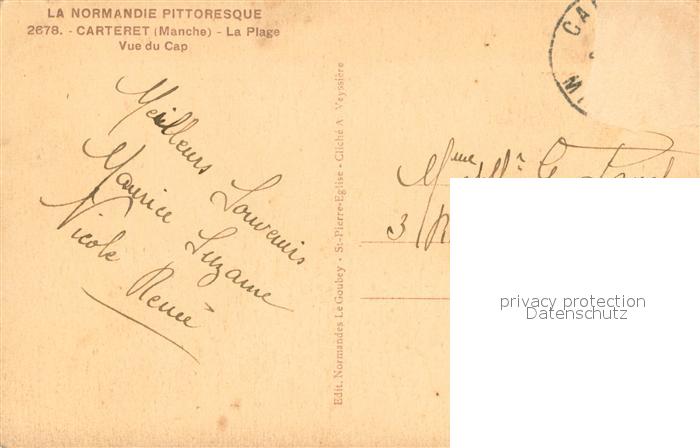 LA NORMANDIE PITTORESQUE
2678. - CARTERET (Manche) - La Plage
Vue du Cap
Meilleurs Souvenirs
Maurice Suzanne
Nicole Renée
Edit. Normandes Le Goubey - St-Pierre-Eglise - Cliché A Veyssière
CA
Mme
3 R
privacy protection
Datenschutz